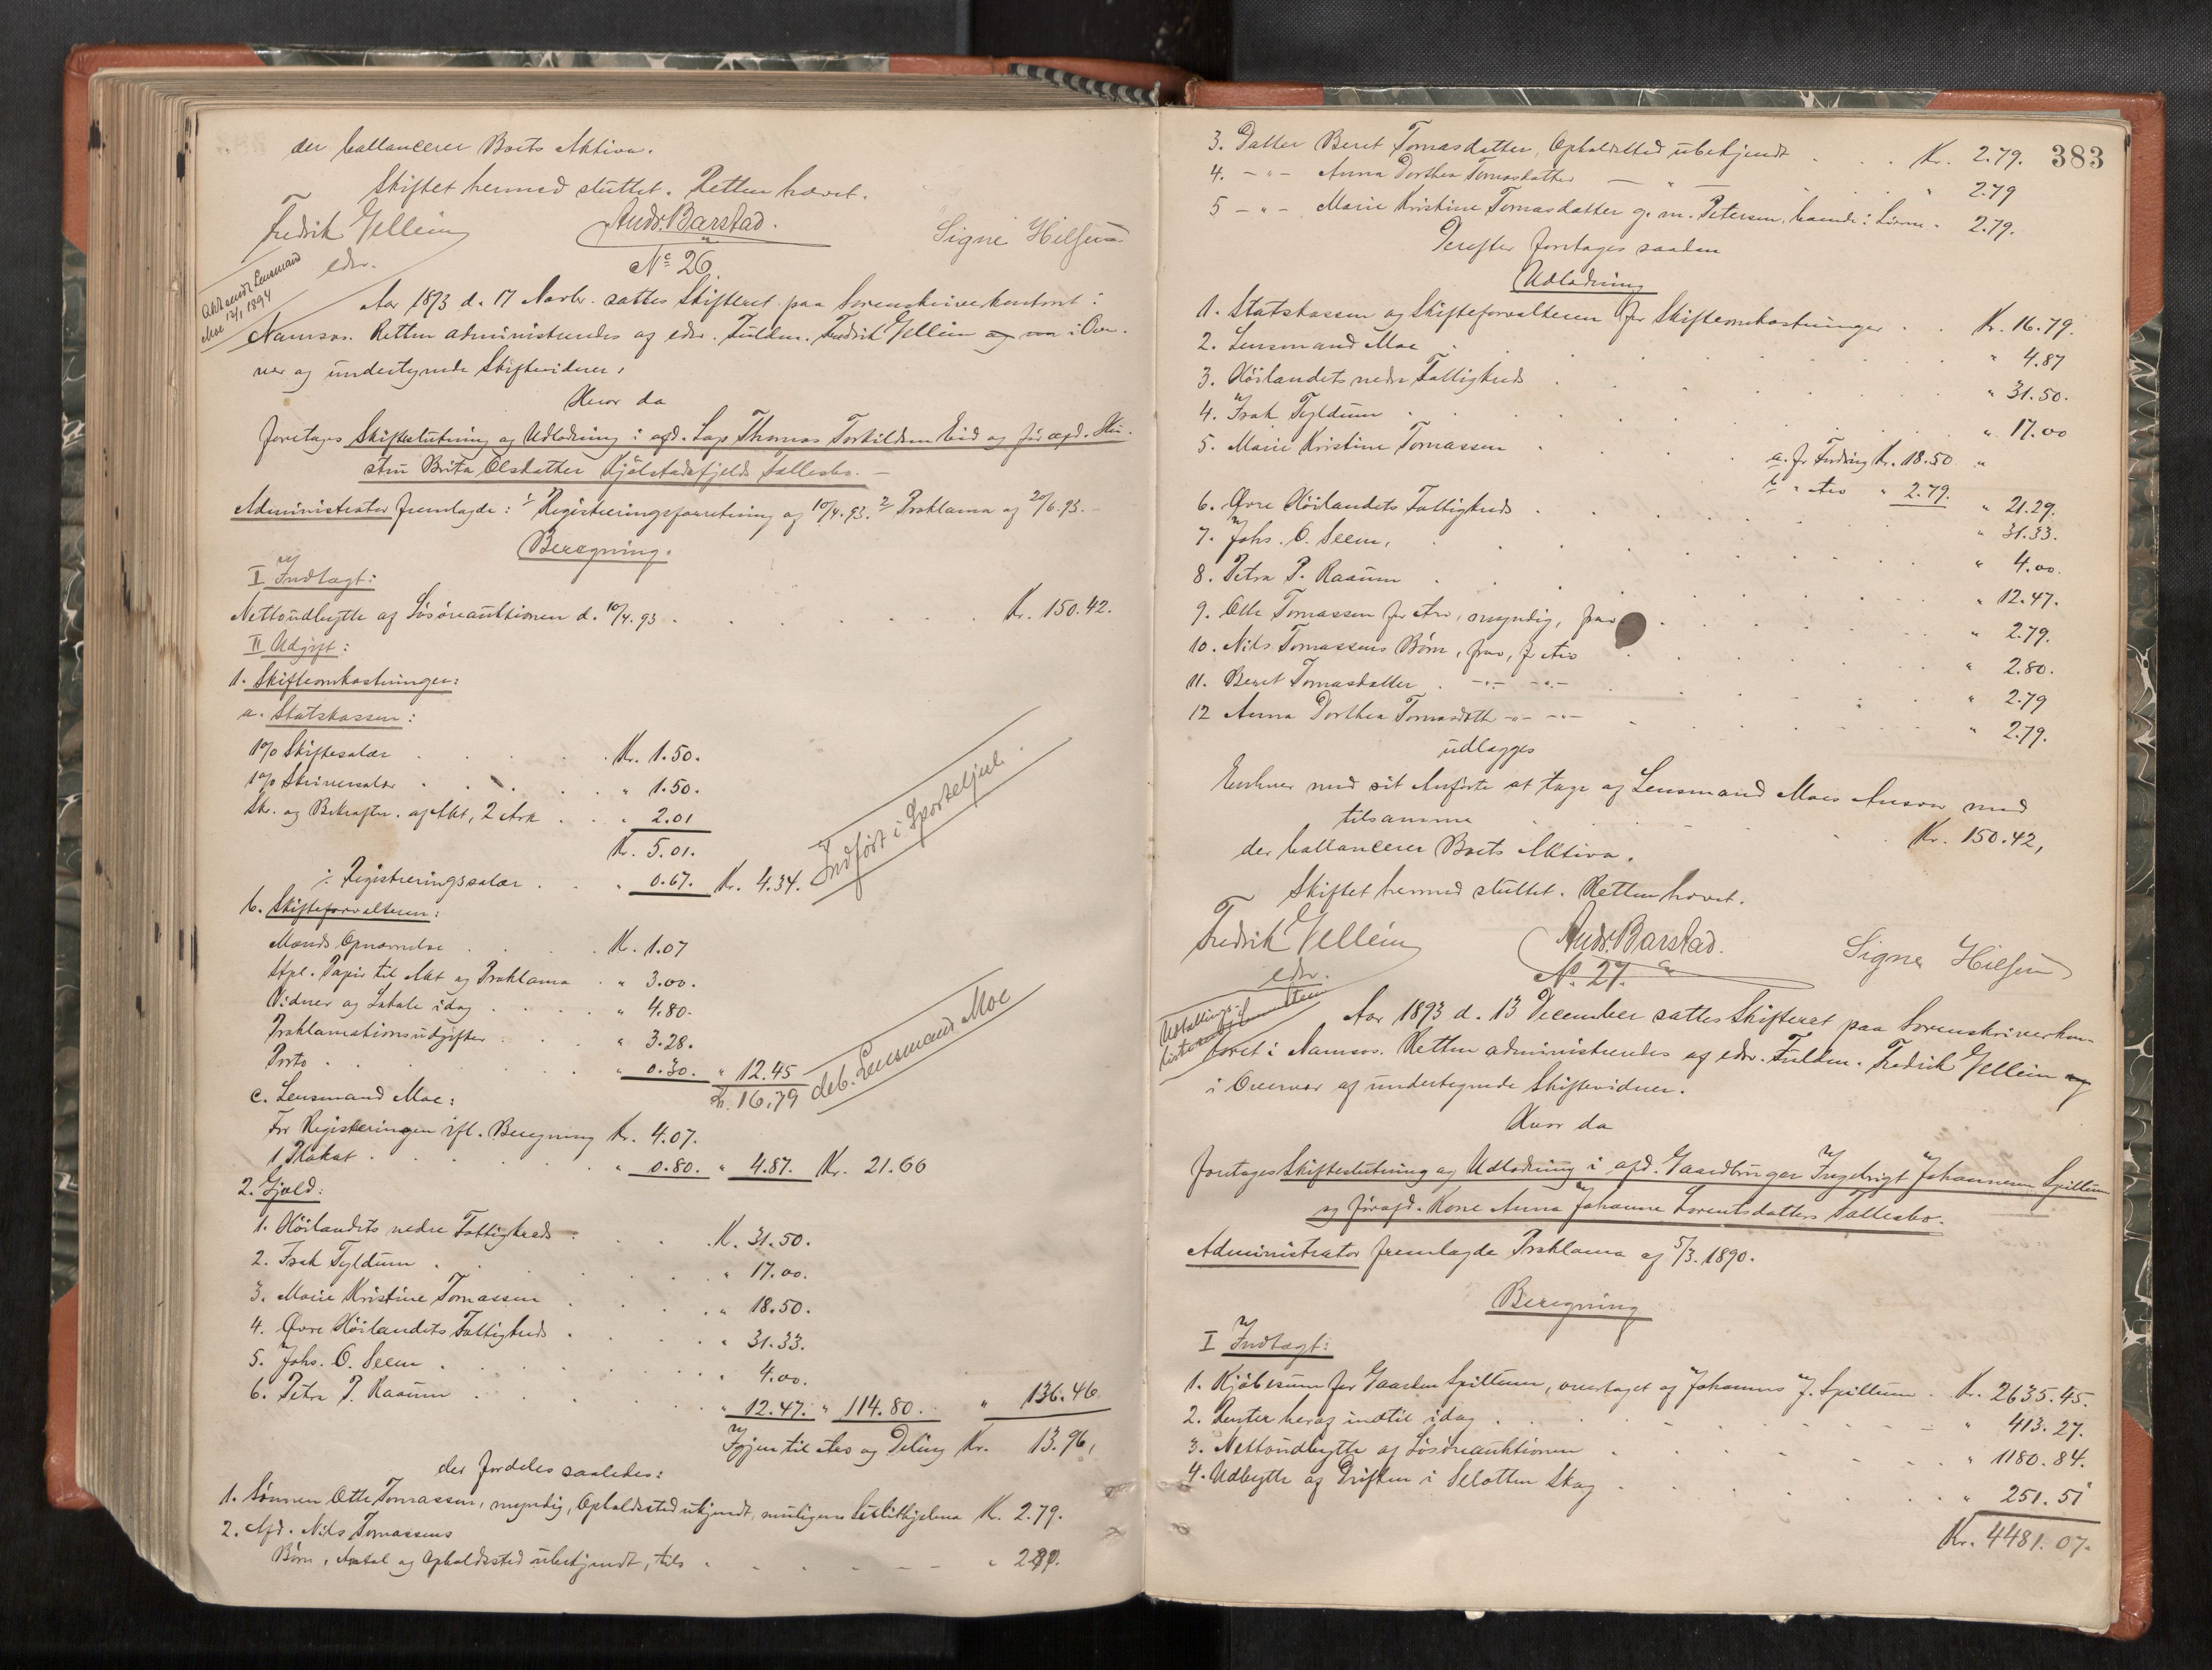 der ballancerer Boets Aktiva.
Skiftet hermed sluttet. Retten hævet.
Fredrik Gellein Andr. Barstad. Signe Hilsen
edsv.
No 26.
Lensmand
Moe 13/1 1894
Aar 1893 d. 17 Novbr. sattes Skifteret paa Sorenskriverkontoret i
Namsos. Retten administreredes af edsv. Fuldm. Fredrik Gellein og var i Over-
vær af undertegnede Skiftevidner.
Hvor da
foretages Skifteslutning og Udlodning i afd. Lap Thomas Torkildsen Eid og før afd. Hu-
stru Brita Olsdatter Kjølstadfjelds Fællesbo. –
Administrator fremlagde: 1/ Registreringsforretning af 10/4.93. 2/ Proklama af 20/6.93. –
Beregning.
I Indtægt:
Nettoudbytte af Løsøreauktionen d. 10/4.93 . . . . . Kr. 150.42.
II Udgift:
1. Skifteomkostninger:
a. Statskassen:
1% Skiftesalær . . . . Kr. 1.50.
1% Skriversalær . . . . " 1.50.
Sk. og Bekræftn. af Akt, 2 Ark . . " 2.01
Kr. 5.01.
÷ Registreringssalær . . " 0.67. Kr. 4.34.
Indført i Sporteljul.
b. Skifteforvalteren:
Mænds Opnævnelse . . . Kr. 1.07
Stpl. Papir til Akt og Proklama . " 3.00.
Vidner og Lokale idag . . . . " 4.80.
Proklamationsudgifter . . . " 3.28.
Porto . . . . . " 0.30. " 12.45
Kr. 16.79
deb. Lensmand Moe
c. Lensmand Moe:
For Registreringen ifl. Beregning Kr. 4.07.
1 Plakat . . . . . " 0.80. " 4.87. Kr. 21.66
2. Gjæld:
1. Höilandets nedre Fattigkreds . . . Kr. 31.50.
2. Isak Tyldum . . . . . " 17.00.
3. Marie Kristine Tomassen . . . . " 18.50.
4. Øvre Höilandets Fattigkreds . . . . " 31.33.
5. Johs. O. Seem . . . . . " 4.00.
6. Petra P. Raaum . . . . " 12.47. " 114.80. " 136.46.
Igjen til Arv og Deling Kr. 13.96,
der fordeles saaledes:
1. Sønnen Otte Tomassen, myndig, Opholdssted ukjendt, muligens Kr. 2.79.
2. Afd. Nils Tomassens
Børn, Antal og Opholdssted ubekjendt, tils . . . . . " 2.80.
383
3. Datter Beret Tomasdatter, Opholdssted ubekjendt . . . Kr. 2.79.
4. – " – Anna Dorthea Tomasdatter — " — " 2.79
5 – " – Marie Kristine Tomasdatter g. m. Petersen, boende i Lierne . 2.79.
Derefter foretages saadan
Udlodning
1. Statskassen og Skifteforvalteren for Skifteomkostninger . . Kr. 16.79.
2. Lensmand Moe . . . . . " 4.87
3. Höilandets nedre Fattigkreds . . . . " 31.50.
4. Isak Tyldum . . . . . " 17.00
5. Marie Kristine Tomassen . . . a. for Fordring Kr. 18.50 "
b " Arv " 2.79. " 21.29.
6. Øvre Höilandets Fattigkreds . . . . " 31.33.
7. Johs. O. Seem, . . . . . " 4.00.
8. Petra P. Raaum . . . . . " 12.47.
9. Otte Tomassen for Arv, myndig, frav . . . . " 2.79.
10. Nils Tomassens Børn, frav, f Arv . . . . " 2.80.
11. Beret Tomasdatter . –"– –"– . . . " 2.79
12 Anna Dorthea Tomasdatt –"– –"– . . . " 2.79.
udlægges
Enhver med sit Anførte at tage af Lensmand Moes Ansvar med
tilsammen . . . . Kr. 150.42,
der ballancerer Boets Aktiva.
Skiftet hermed sluttet. Retten hævet.
Fredrik Gellein Andr. Barstad. Signe Hilsen
edsv.
No. 27.
Udtallings-
Aar 1893 d. 13 December sattes Skifteret paa Sorenskriverkon-
toret i Namsos. Retten administreredes af edsv. Fuldm. Fredrik Gellein og
i Overvær af undertegnede Skiftevidner.
Hvor da
foretages Skifteslutning og Udlodning i afd. Gaardbruger Ingebrigt Johannesen Spillum
og førafd. Kone Anna Johanne Lorentsdatters Fællesbo.
Administrator fremlagde Proklama af 5/3. 1890.
Beregning
I Indtægt:
1. Kjøbesum for Gaarden Spillum, overtaget af Johannes J. Spillum . Kr. 2635.45.
2. Renter heraf indtil idag . . . . . " 413.27.
3. Nettoudbytte af Løsøreauktionen . . . . " 1180.84.
4. Udbytte af Driften i Selotten Skog . . . . " 251.51
Kr. 4481.07.